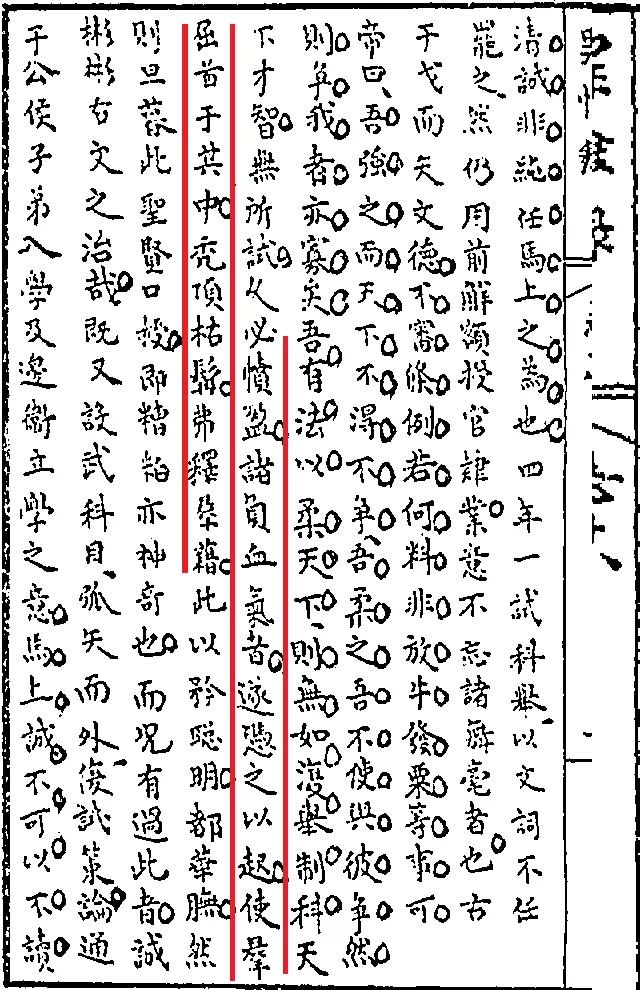 清誠非純任馬上之為也四年一試科舉以文詞不任
罷之然仍用前解額授官肄業意不忘諸薜蒐者也古
于戈而矢文德不審條例若何料非放牛發粟等事可
帝曰吾強之而天下不得不爭吾柔之吾不使與彼爭然
則爭我者亦寡矣吾有法以柔天下則無如復舉制科天
下才智無所試久必憤盈諸負血氣者遂憑之以起使羣
屈首于其中禿頂枯髯弗釋槧藉此以矜聰明都華膴然
則且暮此聖賢口授即糟粕亦神奇也而況有過此者誠
彬彬右文之治哉既又設武科目弧矢而外復試策論通
于公侯子弟入學及邊衛立學之意馬上誠不可以不讀